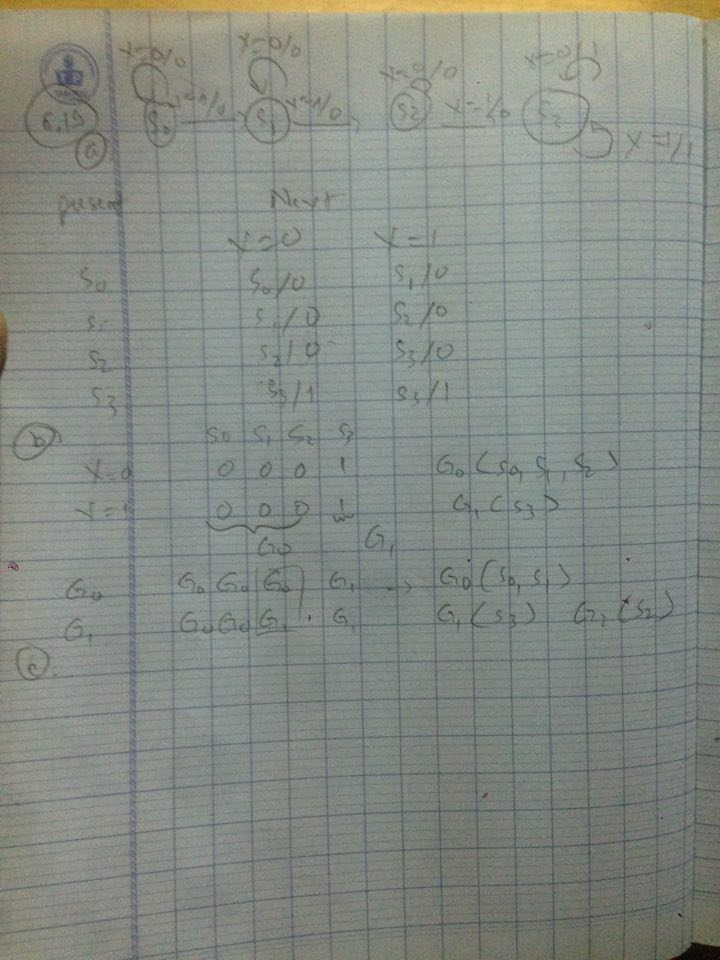 x=0/0 x=0/0 x=0/0 x=0/1
6.19 S0 x=1/0 S1 x=1/0 S2 x=1/0 S3 x=1/1
a
present Next
x=0 x=1
S0 S0/0 S1/0
S1 S1/0 S2/0
S2 S2/0 S3/0
S3 S3/1 S3/1
b S0 S1 S2 S3
x=0 0 0 0 1 G0(S0,S1,S2)
x=1 0 0 0 1 G1(S3)
G0 G1
G0 G0 G0 G0 G1 → G0(S0,S1)
G1 G0 G0 G1 G1 G1(S3) G2(S2)
c